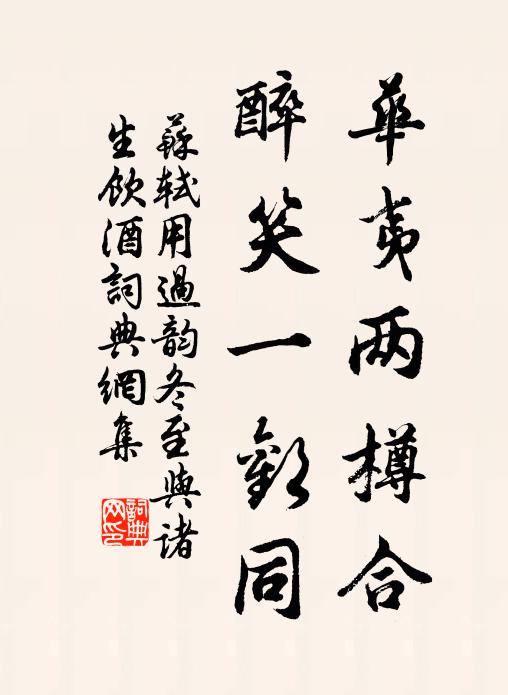 華夷两樽合
醉笑一歡同
蘇軾用過韵冬至與諸
生飲酒詞典網集
詞典
网印